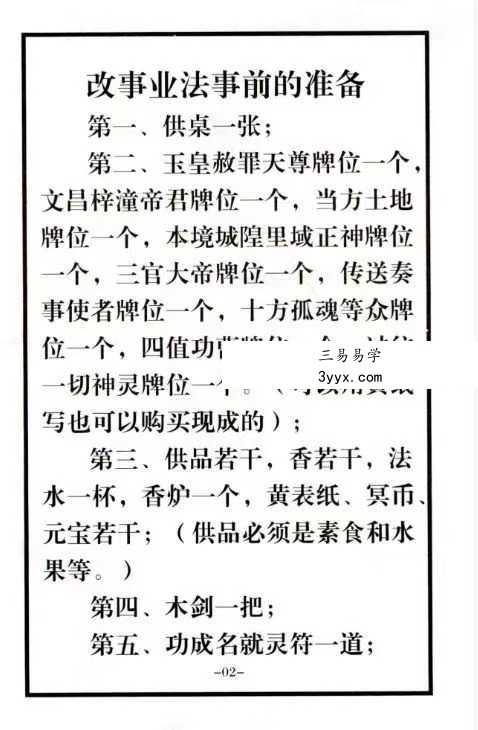 改事业法事前的准备
第一、供桌一张；
第二、玉皇赦罪天尊牌位一个，
文昌梓潼帝君牌位一个，当方土地
牌位一个，本境城隍里域正神牌位
一个，三官大帝牌位一个，传送奏
事使者牌位一个，十方孤魂等众牌
位一个，四值功
三易易学
一切神灵牌位一
3yyx.com
写也可以购买现成的）；
第三、供品若干，香若干，法
水一杯，香炉一个，黄表纸、冥币、
元宝若干；（供品必须是素食和水
果等。）
第四、木剑一把；
第五、功成名就灵符一道；
-02-